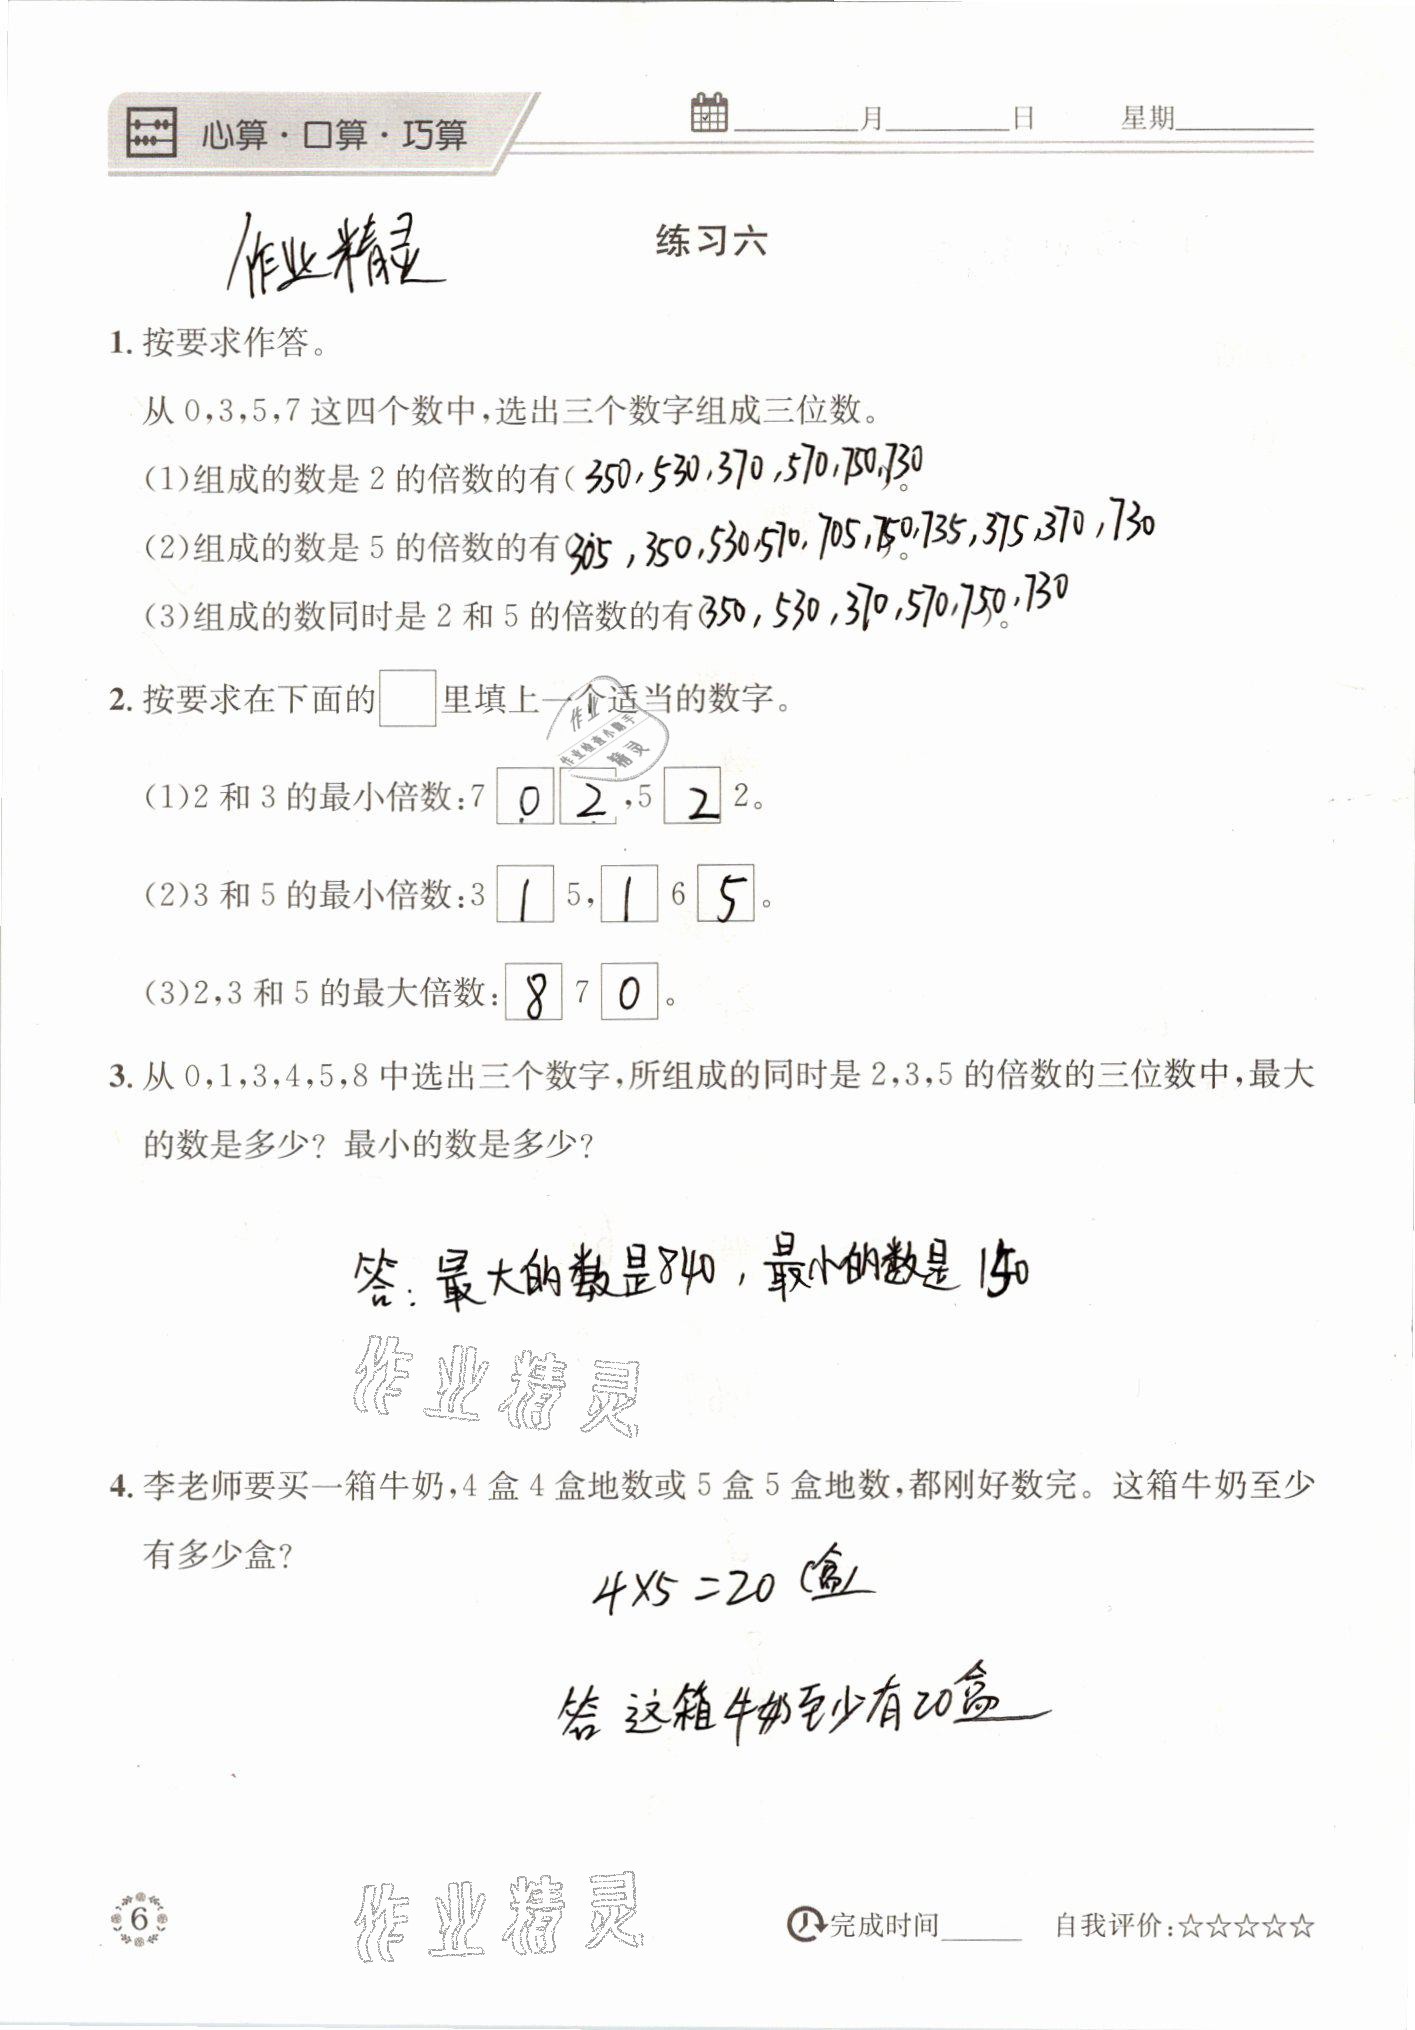 心算·口算·巧算
月 日 星期
作业精灵
练习六
1. 按要求作答。
从0,3,5,7这四个数中,选出三个数字组成三位数。
(1)组成的数是2的倍数的有(350,530,370,570,750,730)。
(2)组成的数是5的倍数的有(305,350,530,570,705,750,735,375,370,730
(3)组成的数同时是2和5的倍数的有(350,530,370,570,750,730)。
2. 按要求在下面的□里填上一个适当的数字。
作业
作业检查小助手
精灵
(1)2和3的最小倍数:7 0 2,5 2 2。
(2)3和5的最小倍数:3 1 5,1 6 5。
(3)2,3和5的最大倍数:8 7 0。
3. 从0,1,3,4,5,8中选出三个数字,所组成的同时是2,3,5的倍数的三位数中,最大
的数是多少?最小的数是多少?
答:最大的数是840,最小的数是150
作业精灵
4. 李老师要买一箱牛奶,4盒4盒地数或5盒5盒地数,都刚好数完。这箱牛奶至少
有多少盒?
4×5=20(盒)
答 这箱牛奶至少有20盒
作业精灵
6
完成时间 自我评价:☆☆☆☆☆